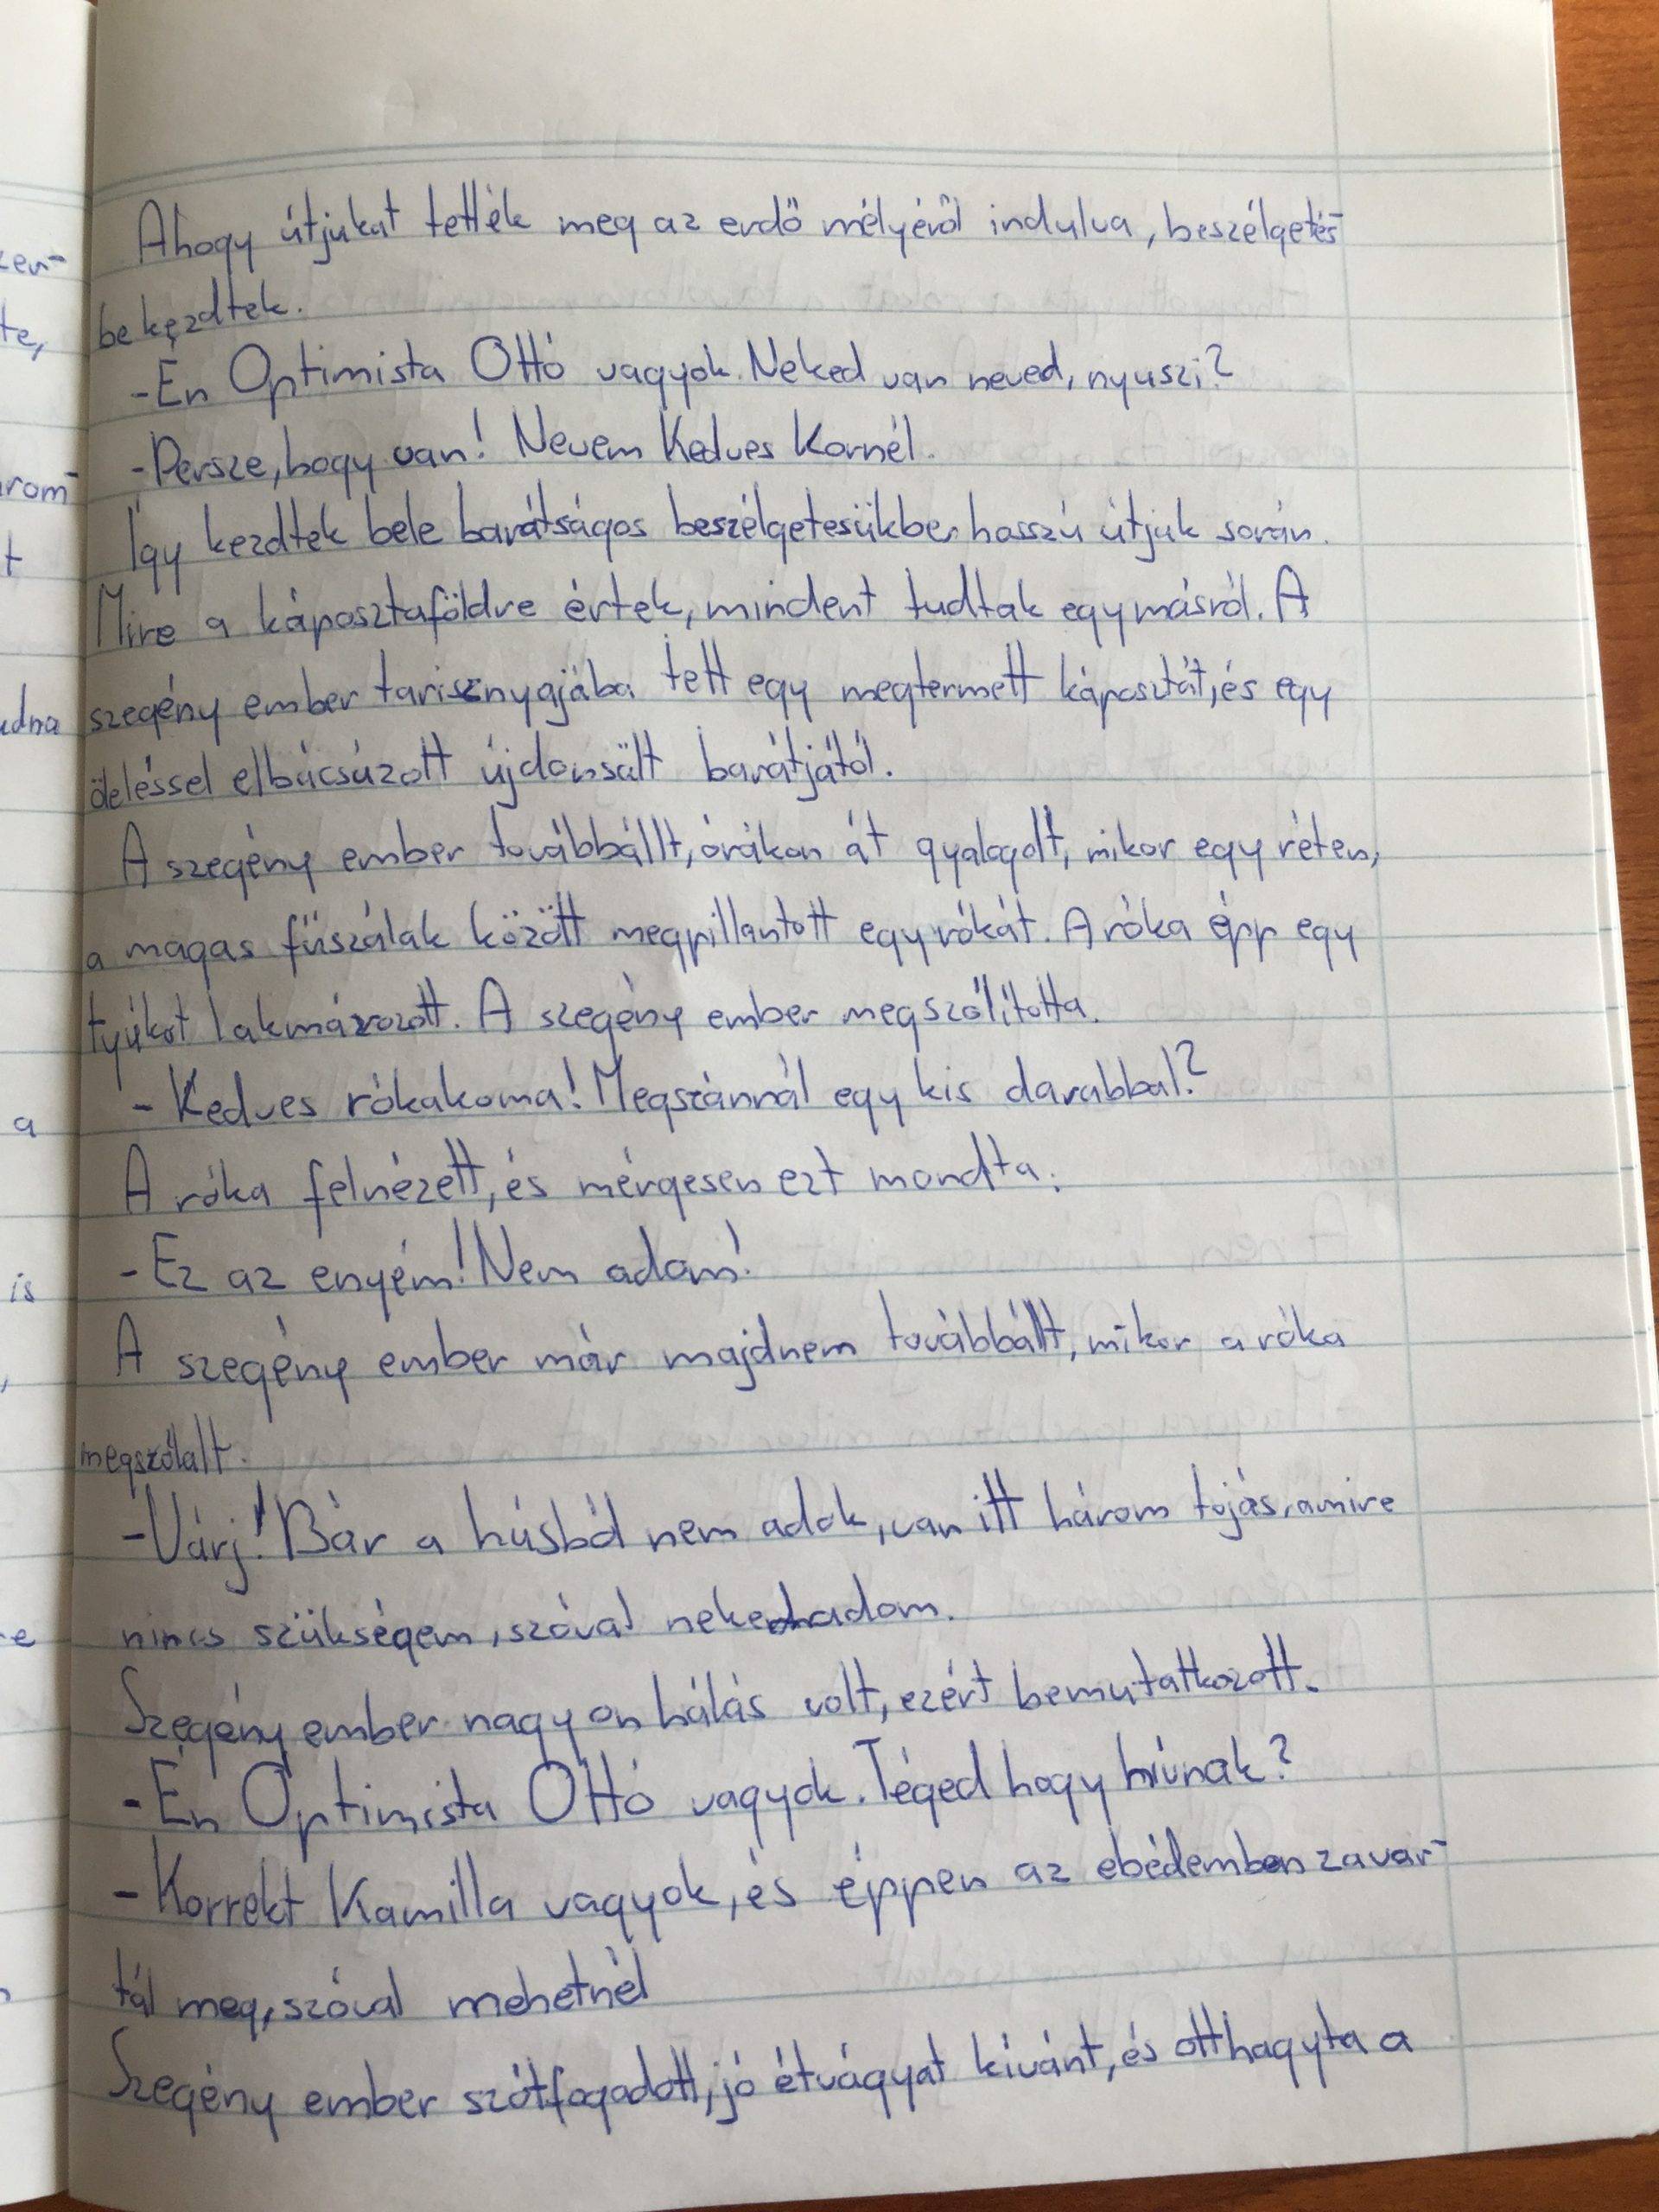 Ahogy útjukat tették meg az erdő mélyéről indulva, beszélgetés-
be kezdtek.
-Én Optimista Ottó vagyok. Neked van neved, nyuszi?
-Persze, hogy van! Nevem Kedves Kornél.
Így kezdtek bele barátságos beszélgetesükbe hosszú útjuk során.
Mire a káposztaföldre értek, mindent tudtak egymásról. A
szegény ember tarisznyájába tett egy megtermett káposztát, és egy
öleléssel elbúcsúzott újdonsült barátjától.
A szegény ember továbbállt, órákon át gyalogolt, mikor egy réten,
a magas fűszálak között megpillantott egy rókát. A róka épp egy
tyúkot lakmározott. A szegény ember megszólította.
- Kedves rókakoma! Megszánnál egy kis darabbal?
A róka felnézett, és mérgesen ezt mondta:
- Ez az enyém! Nem adom!
A szegény ember már majdnem továbbált, mikor a róka
megszólalt.
-Várj! Bár a húsból nem adok, van itt három tojás, amire
nincs szükségem, szóval neked adom.
Szegény ember nagyon hálás volt, ezért bemutatkozott.
-Én Optimista Ottó vagyok. Téged hogy hívnak?
- Korrekt Kamilla vagyok, és éppen az ebédemben zavar-
tál meg, szóval mehetnél
Szegény ember szótfogadott, jó étvágyat kívánt, és otthagyta a